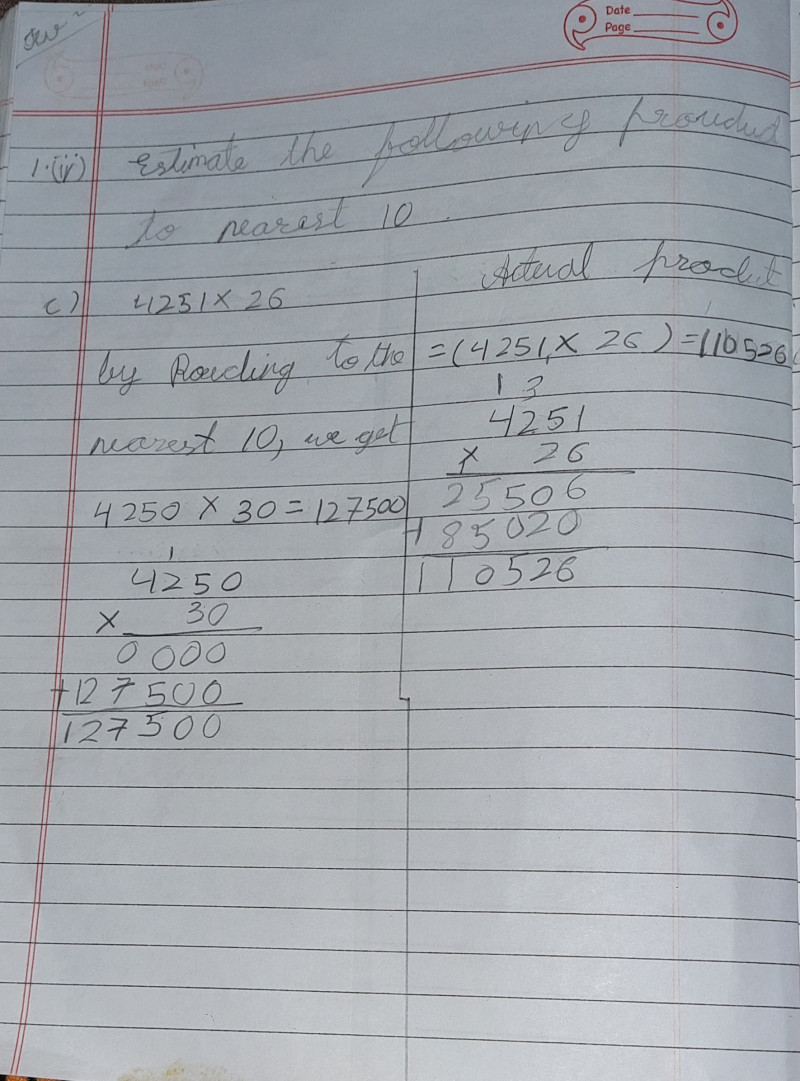 Date
Page
1.(iv) Estimate the followinf proudud
to nearest 10.
c) 4251 x 26
by Rouding to the
nearest 10, we get
4250 x 30 = 127500
1
4250
x 30
0000
+127500
127500
Actual produt
=(4251 x 26) = 110526
1 3
4251
x 26
25506
+ 85020
110526